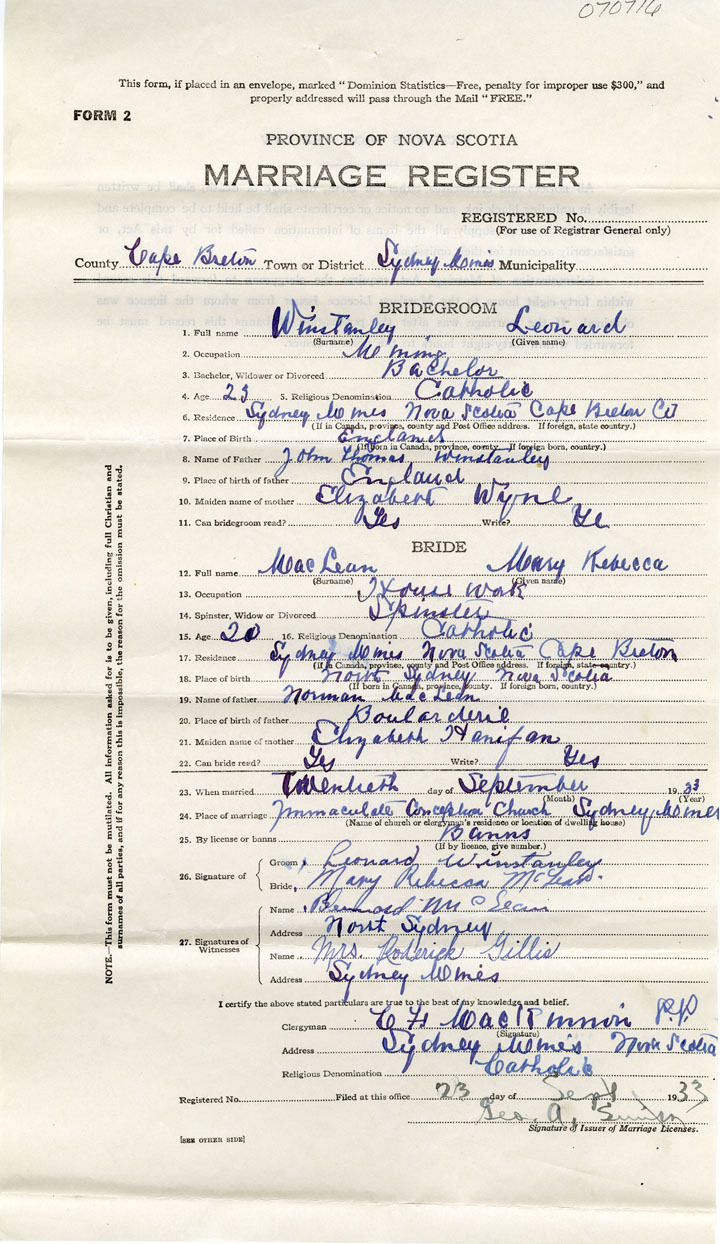 070716
This form, if placed in an envelope, marked "Dominion Statistics—Free, penalty for improper use $300," and
properly addressed will pass through the Mail "FREE."
FORM 2
PROVINCE OF NOVA SCOTIA
MARRIAGE REGISTER
REGISTERED No.
(For use of Registrar General only)
County Cape Breton Town or District Sydney Mines Municipality
BRIDEGROOM
1. Full name Winstanley Leonard
(Surname) (Given name)
2. Occupation Mining
3. Bachelor, Widower or Divorced Bachelor
4. Age 23 5. Religious Denomination Catholic
6. Residence Sydney Mines Nova Scotia Cape Breton Co
(If in Canada, province, county and Post Office address. If foreign, state country.)
7. Place of Birth England
(If born in Canada, province, county. If foreign born, country.)
8. Name of Father John Thomas Winstanley
9. Place of birth of father England
10. Maiden name of mother Elizabeth
11. Can bridegroom read? Yes Write? Ye
BRIDE
12. Full name MacLean Mary Rebecca
(Surname) (Given name)
13. Occupation House Work
14. Spinster, Widow or Divorced Spinster
15. Age 20 16. Religious Denomination Catholic
17. Residence Sydney Mines Nova Scotia Cape Breton
(If in Canada, province, county and Post Office address. If foreign, state country.)
18. Place of birth North Sydney Nova Scotia
(If born in Canada, province, county. If foreign born, country.)
19. Name of father Norman MacLean
20. Place of birth of father Boularderie
21. Maiden name of mother Elizabeth Hanifan
22. Can bride read? Yes Write? Yes
23. When married Twentieth day of September 1933
(Month) (Year)
24. Place of marriage Immaculate Conception Church Sydney Mines
(Name of church or clergyman's residence or location of dwelling house)
25. By license or banns Banns
(If by licence, give number.)
26. Signature of
Groom Leonard Winstanley
Bride Mary Rebecca McLean
27. Signatures of Witnesses
Name Bernard McLean
Address North Sydney
Name Mrs. Roderick Gillis
Address Sydney Mines
I certify the above stated particulars are true to the best of my knowledge and belief.
Clergyman MacKinnon P.P.
(Signature)
Address Sydney Mines Nova Scotia
Religious Denomination Catholic
Registered No. Filed at this office 23 day of Sept 1933
Geo. A.
Signature of Issuer of Marriage Licenses.
[SEE OTHER SIDE]
NOTE.—This form must not be mutilated. All information asked for is to be given, including full Christian and
surnames of all parties, and if for any reason this is impossible, the reason for the omission must be stated.